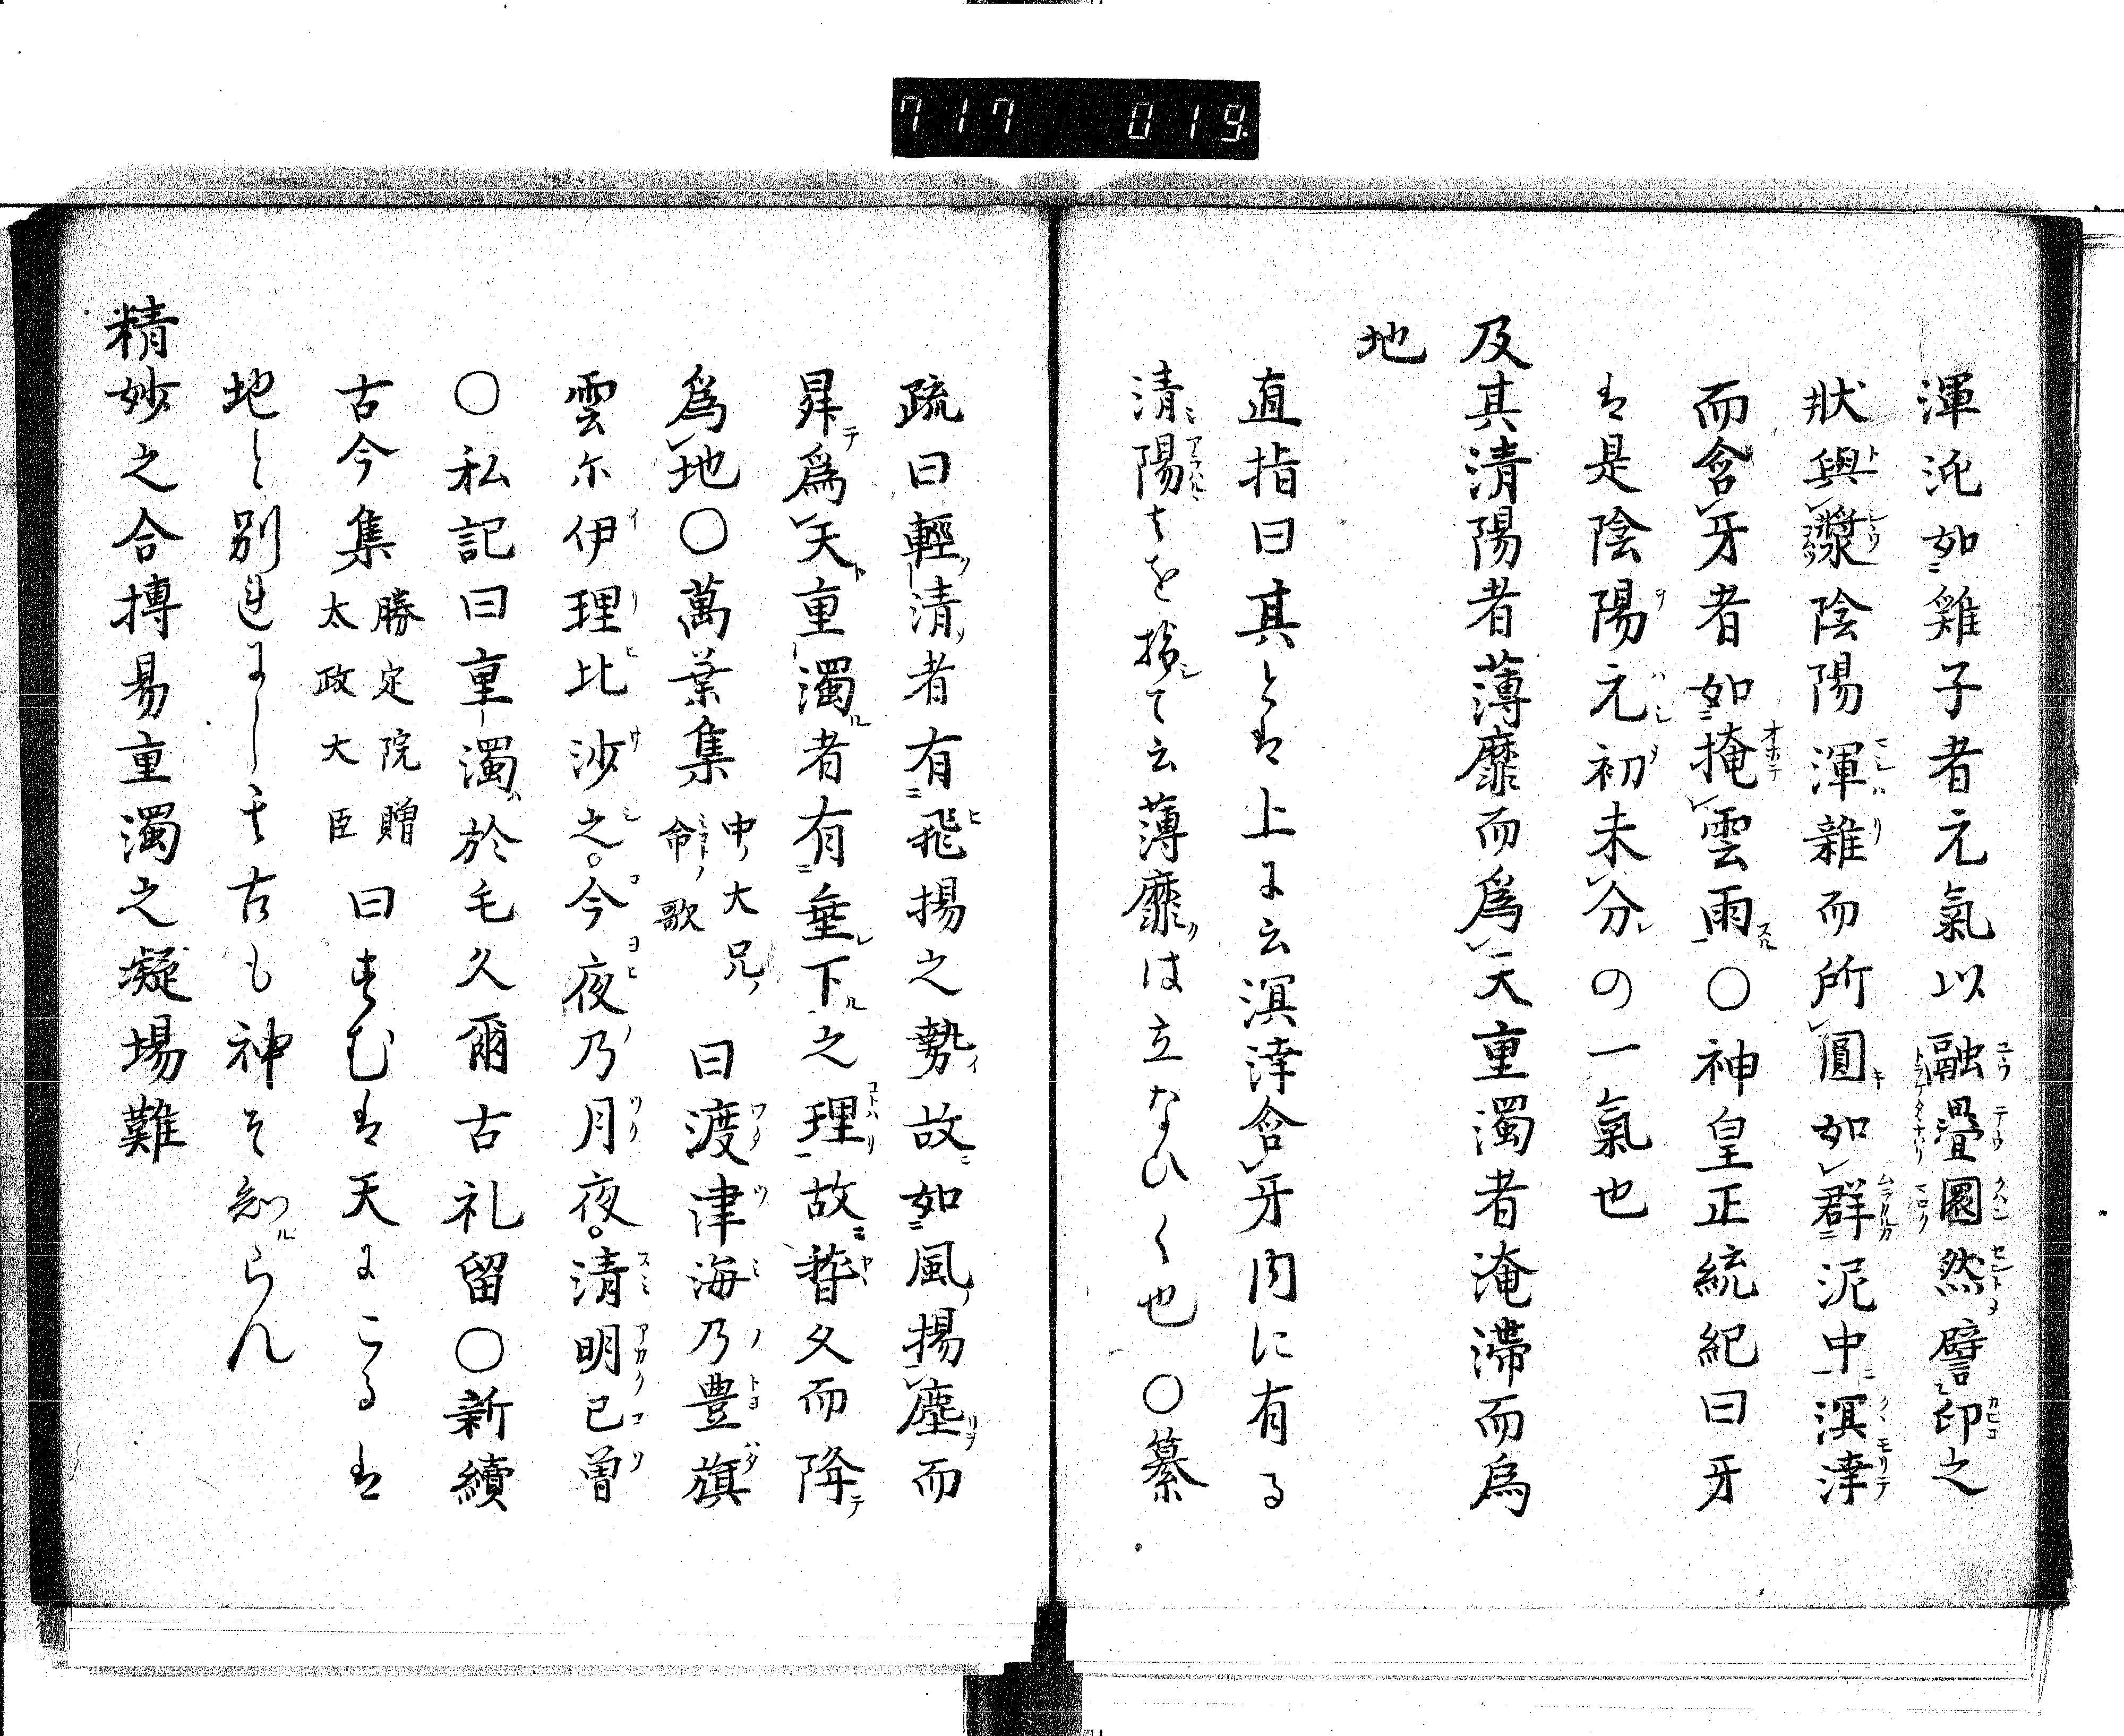 717 019
渾沌如雞子者元氣以融疊圓然譬卵之
狀與漿陰陽渾雜而所圓如群泥中溟涬
而含牙者如掩雲雨〇神皇正統紀曰牙
は是陰陽元初未分の一氣也
及其清陽者薄靡而爲天重濁者淹滯而爲
地
直指曰其とは上に云溟涬含牙内に有る
清陽さを指て云薄靡は立なひく也〇纂
疏曰輕清者有飛揚之勢故如風揚塵而
昇爲天重濁者有垂下之理故暫久而降
爲地〇萬葉集中大兄命歌曰渡津海乃豊旗
雲尓伊理比沙之今夜乃月夜清明己曽
〇私記曰重濁於毛久爾古礼留〇新續
古今集勝定院贈太政大臣曰すむは天にこるは
地と別れにしより古も神そ知らん
精妙之合搏易重濁之凝場難